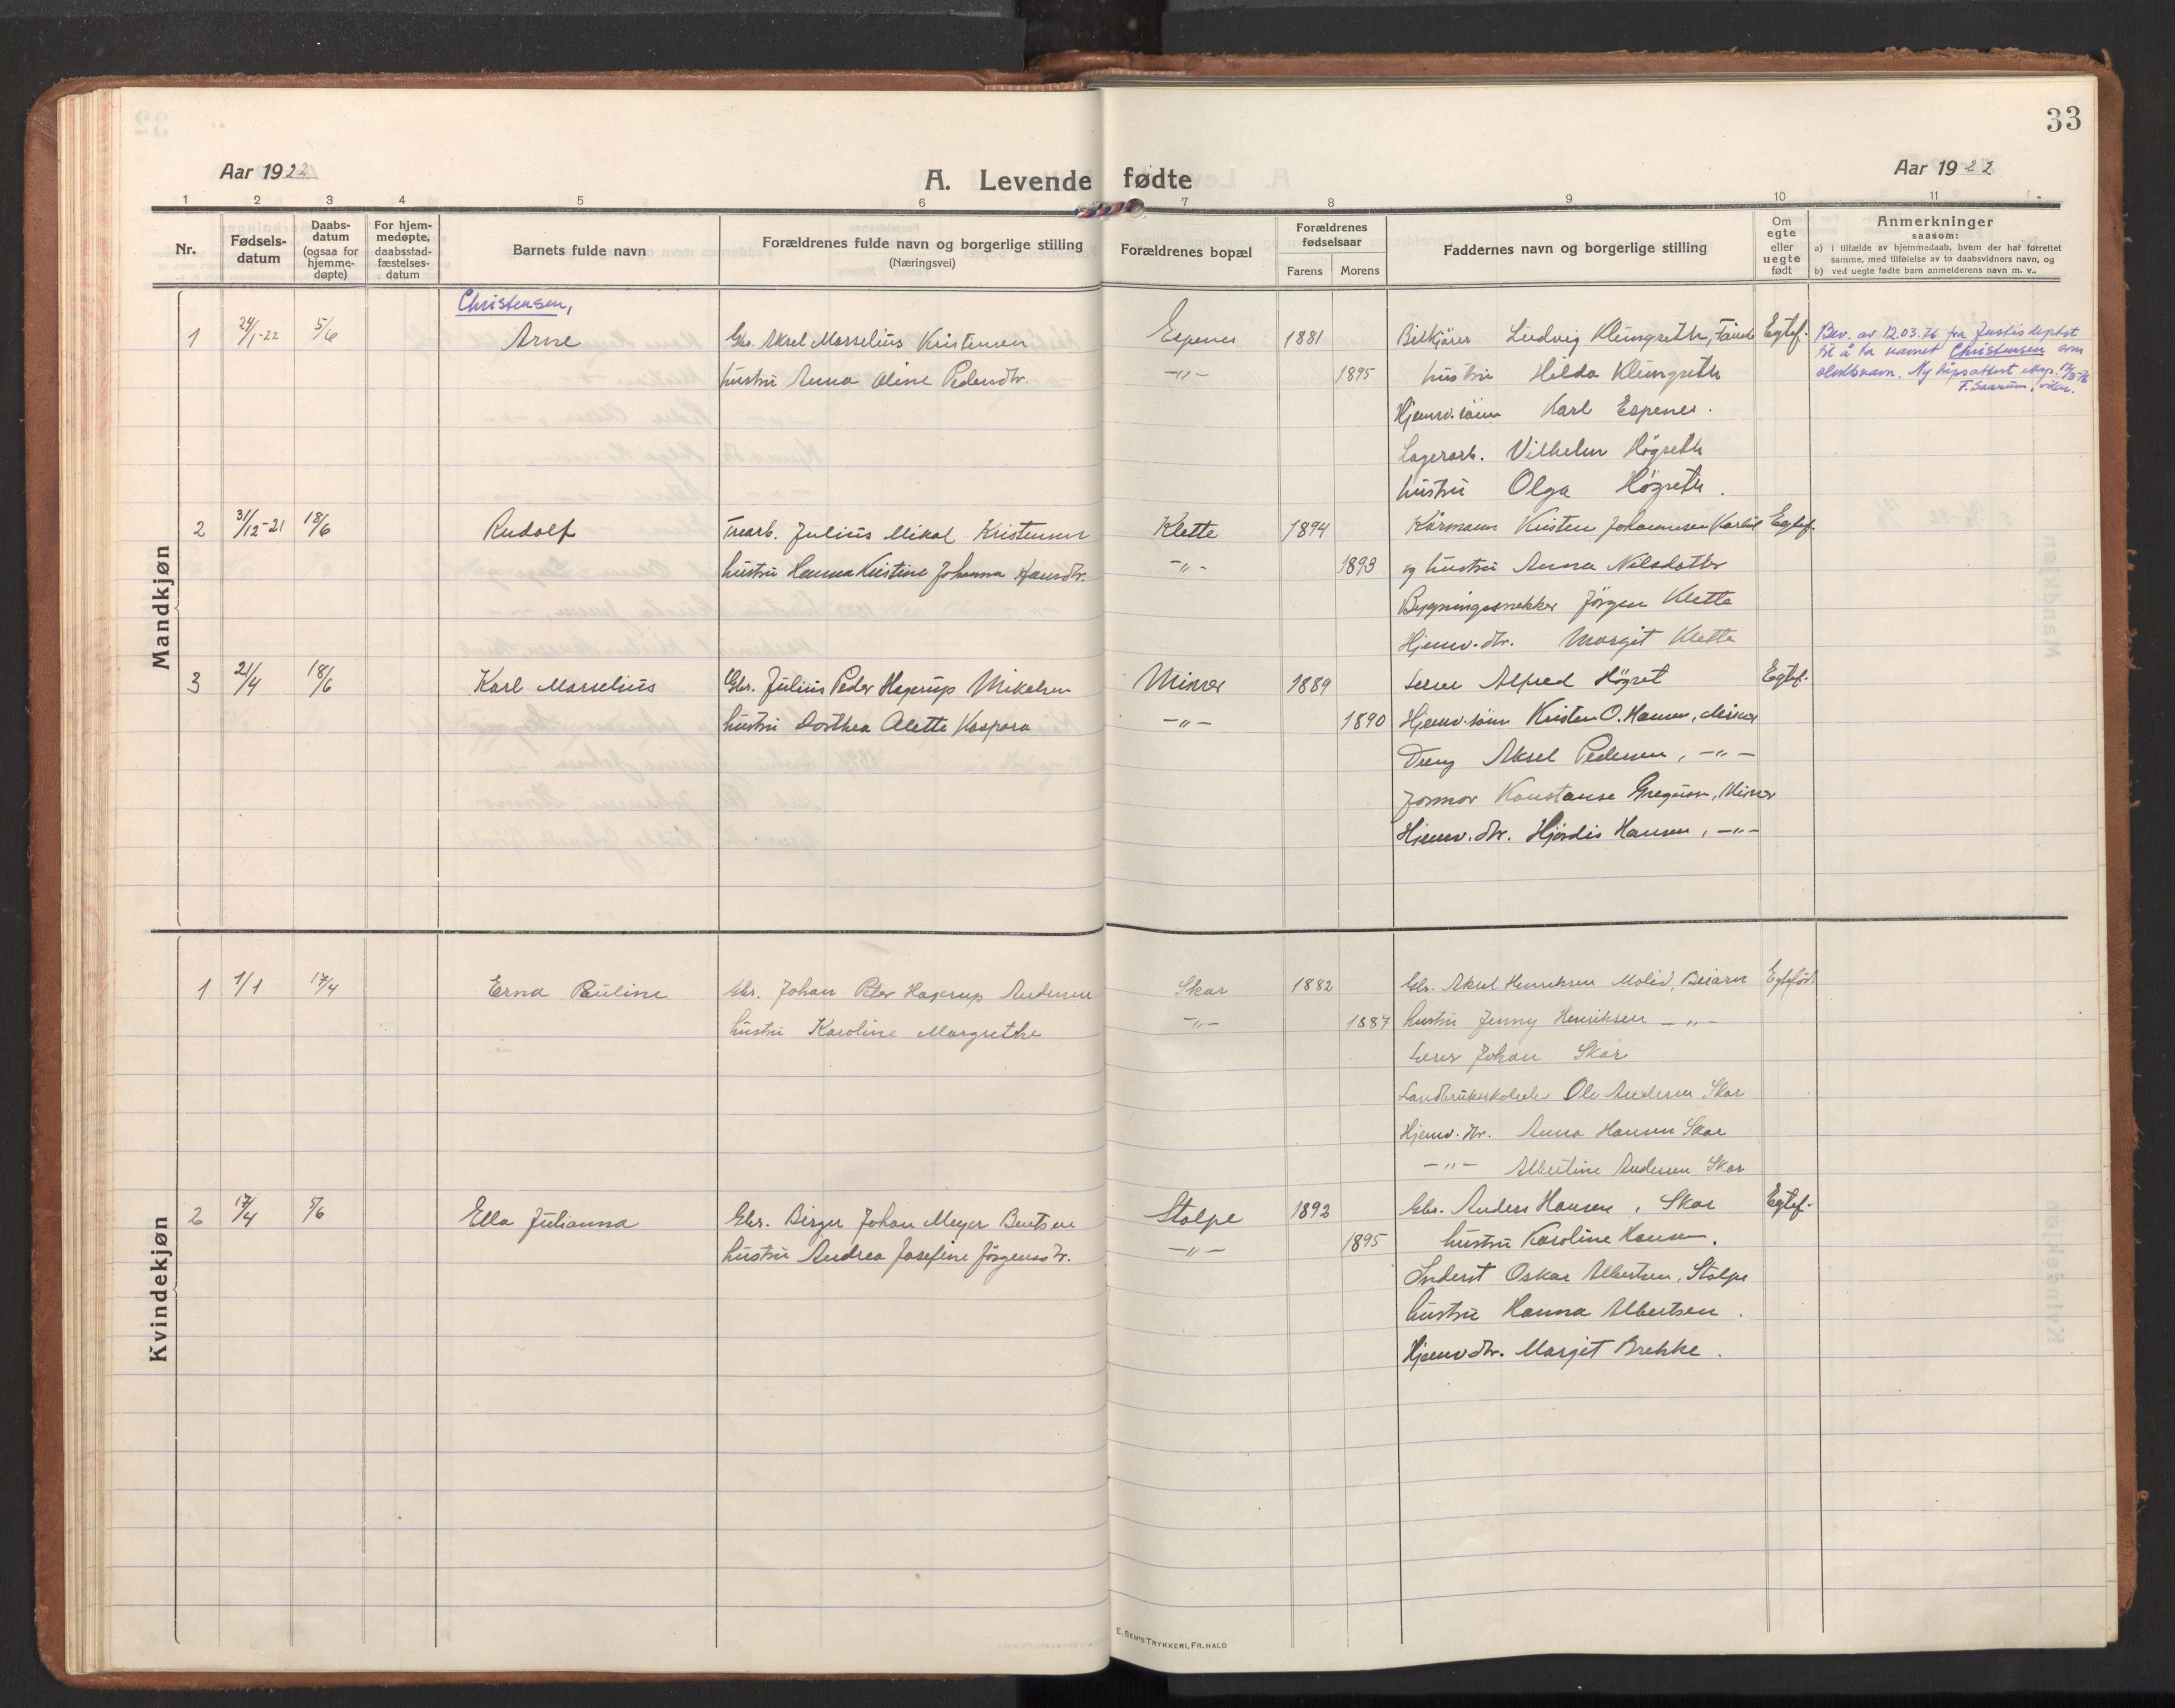 33
Aar 1922
A. Levende fødte
Aar 1922
1 2 3 4 5 6 7 8 9 10 11
Nr.
Fødsels-datum
Daabs-datum (ogsaa for hjemme-døpte)
For hjem-medøpte, daabsstad-fæstelses-datum
Barnets fulde navn
Forældrenes fulde navn og borgerlige stilling (Næringsvei)
Forældrenes bopæl
Forældrenes fødselsaar
Farens Morens
Faddernes navn og borgerlige stilling
Om egte eller uegte født
Anmerkninger
saasom:
a) i tilfælde av hjemmedaab, hvem der har forrettet
samme, med tilføielse av to daabsvidners navn, og
b) ved uegte fødte barn anmelderens navn m. v..
Mandkjøn
Christensen,
1 24/1-22 5/6 Arne Gbr. Aksel Marselius Kristensen Espenes 1881 Bilkjører Ludvig Klungseth, Fauske Egtef. Bev. av 12.03.76 fra Justisdeptet
til å ta navnet Christensen som
slektsnavn. Ny dåpsattest eksp. 17/3-76
F. Saarum, vikar.
hustru Anna Oline Pedersdtr. -"- 1895 hustru Hilda Klungseth
Hjemv. søn Karl Espenes.
Lagerarb. Vilhelm Høgseth
hustru Olga Høgseth.
2 31/12-21 18/6 Rudolf Trearb. Julius Mikal Kristensen Klette 1894 Kårmann Kristen Johannesen Egtef.
hustru Hanna Kristine Johanna Hansdtr. -"- 1893 og hustru Anna Nilsdatter
Bygningssnekker Jørgen Klette
Hjemv. dtr. Margit Klette
3 21/4 18/6 Karl Marselius Gbr. Julius Peder Hagerup Mikalsen Misvær 1889 Lærer Alfred Høgset Egtef.
hustru Dorthea Alette Kaspara -"- 1890 Hjemv. søn Kristen O. Hansen, Misvær
Dreng Aksel Pedersen, -"-
Jormor Konstanse Gregusen, Misvær
Hjemv. dtr. Hjørdis Hansen, -"-
Kvindekjøn
1 1/1 17/4 Erna Pauline Gbr. Johan Peter Hagerup Andersen Skar 1882 Gbr. Aksel Henriksen Molid, Beiarn Egtefødt
hustru Karoline Margrethe -"- 1887 hustru Jenny Henriksen -"-
Lærer Johan Skar
Ole Andersen Skar
Hjemv. dtr. Anna Hansen Skar
-"- Albertine Andersen Skar
2 17/4 5/6 Ella Julianna Gbr. Birger Johan Meyer Bentsen Stolpe 1892 Gbr. Anders Hansen, Skar Egtef.
hustru Andrea Josefine Jørgensdtr. -"- 1895 hustru Karoline Hansen.
Inderst Oskar Albertsen, Stolpe
hustru Hanna Albertsen.
Hjemv dtr. Margit Brekke.
E. Sem's Trykkeri, Fr.hald